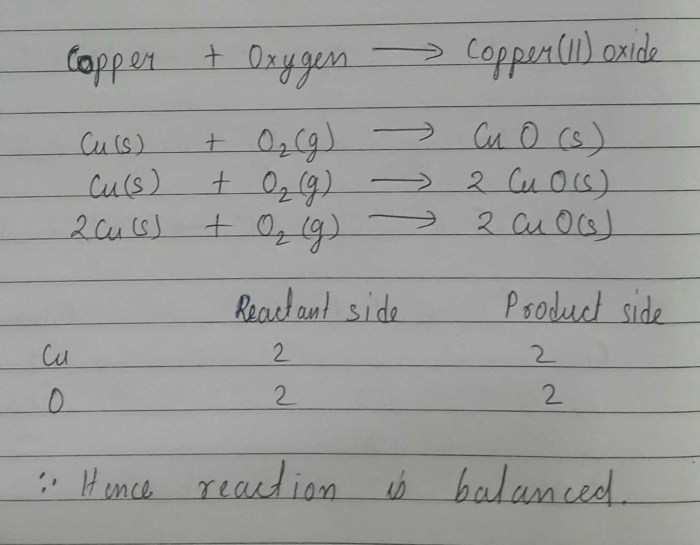 Copper + Oxygen → Copper(II) oxide
Cu(s) + O₂(g) → CuO(s)
Cu(s) + O₂(g) → 2 CuO(s)
2Cu(s) + O₂(g) → 2 CuO(s)
Reactant side Product side
Cu 2 2
O 2 2
∵ Hence reaction is balanced.